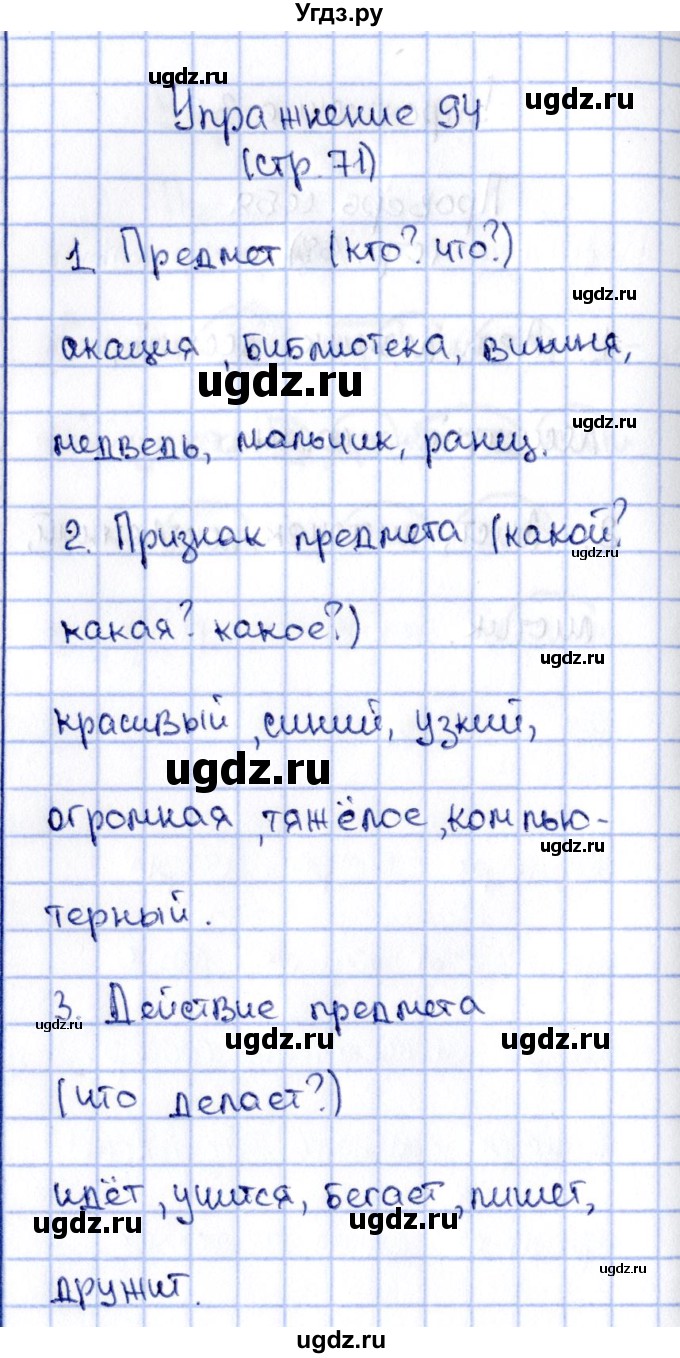 Угдз.ру
ugdz.ru
Упражнение 94
ugdz.ru
(стр. 71)
1. Предмет (кто? что?)
ugdz.ru
акация, библиотека, вишня,
ugdz.ru
ugdz.ru
медведь, мальчик, ранец.
2. Признак предмета (какой?
ugdz.ru
какая? какое?)
ugdz.ru
красивый, синий, узкий,
ugdz.ru
огромная, тяжёлое, компью-
ugdz.ru
терный.
3. Действие предмета
ugdz.ru
ugdz.ru
ugdz.ru
(что делает?)
идёт, учится, бегает, пишет,
ugdz.ru
ugdz.ru
ugdz.ru
дружит.
ugdz.ru